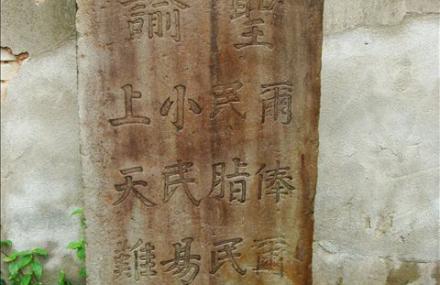 聖諭
爾俸爾
民脂民
小民易
上天難